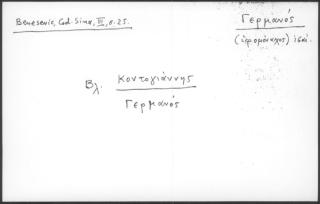 Benesevic, Cod. Sinai, III, σ. 25.
Γερμανός
(ἱερομόναχος)
Βλ. Κοντογιάννης
Γερμανός